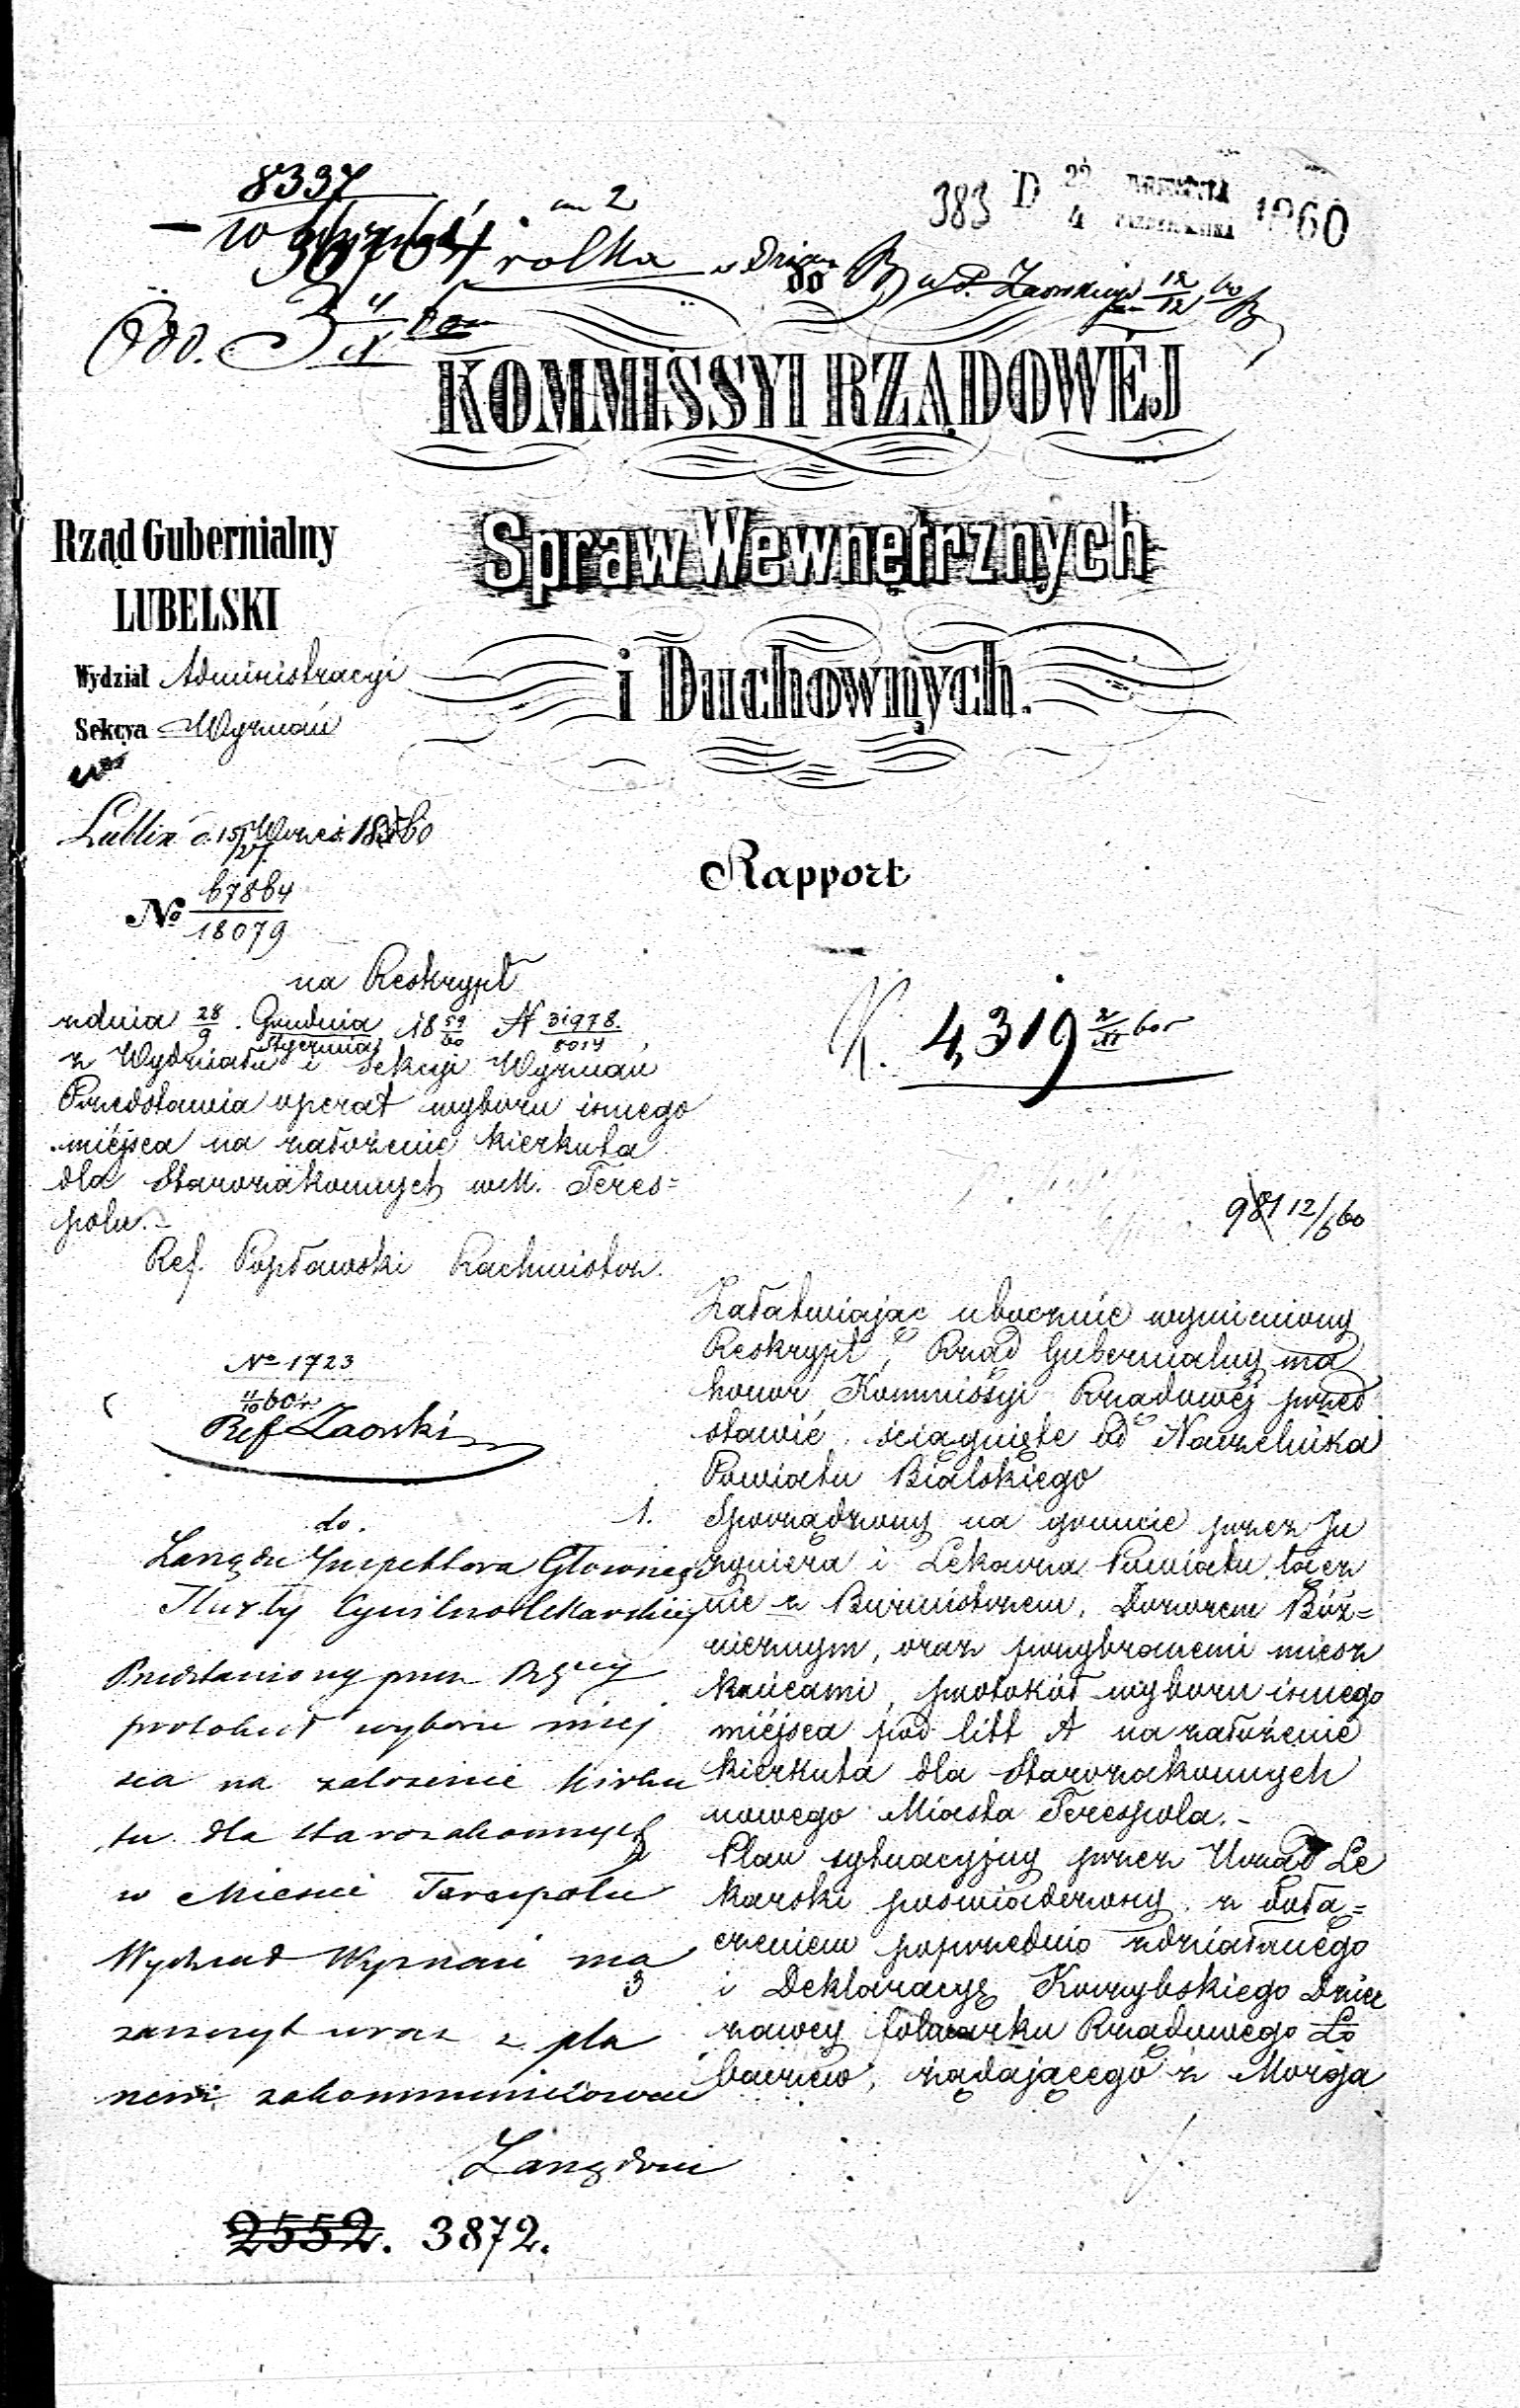 8337
rolka
383 D 22 WRZEŚNIA 1860
4 PAZDZIERNIKA
do
KOMMISSYI RZĄDOWÉJ
Spraw Wewnętrznych
i Duchownych.
Rząd Gubernialny
LUBELSKI
Wydział Administracyi
Sekcya Wyznań
Lublin d. 15/27 Wrześ. 1860
Rapport
No 67864
18079
na Reskrypt
zdnia 28/9 Grudnia/Stycznia 18 59/60 N 31978/8014
z Wydziału i Sekcyi Wyznań
Przedstawia operat wyboru innego
miéjsca na założenie kierkuta
dla Starozakonnych w M. Teres=
polu.-
Ref. Popławski Rachmistrz.
K. 4319
981 12/6 60
No 1723
11/10 60 r.
Ref Zaorski
do.
Zarządu Inspektora Głownego
Służby Cywilno Lekarskiej
Przedstawiony przez
protokuł wyboru miej
sca na założenie kirku
tu dla starozakonnych
w Mieście Terespolu
Wydział Wyznań ma
zaszczyt wraz z pla
nem zakommunikować
2552. 3872.
Załatwiając ubocznie wymieniony
Reskrypt, Rząd Gubernialny ma
honor Kommissyi Rządowéj przed
stawić, sciągnięte od Naczelnika
Powiatu Bialskiego
1. Sporządzony na gruncie przez In
zyniera i Lekarza Powiatu, łącz
nie z Burmistrzem, Dozorem Bóź=
nicznym, oraz przybranemi miesz
kańcami, protokół wyboru innego
miéjsca pod litt A na założenie
kierkuta dla Starozakonnych
nowego Miasta Terespola.-
Plan sytuacyjny przez Urząd Le
karski poświadczony, z dołą=
czeniem poprzednio zdziałanego
3 i Deklaracyę Korzybskiego Dzier
zawcy folwarku Rządowego Ło
baczew, żądającego z Morga